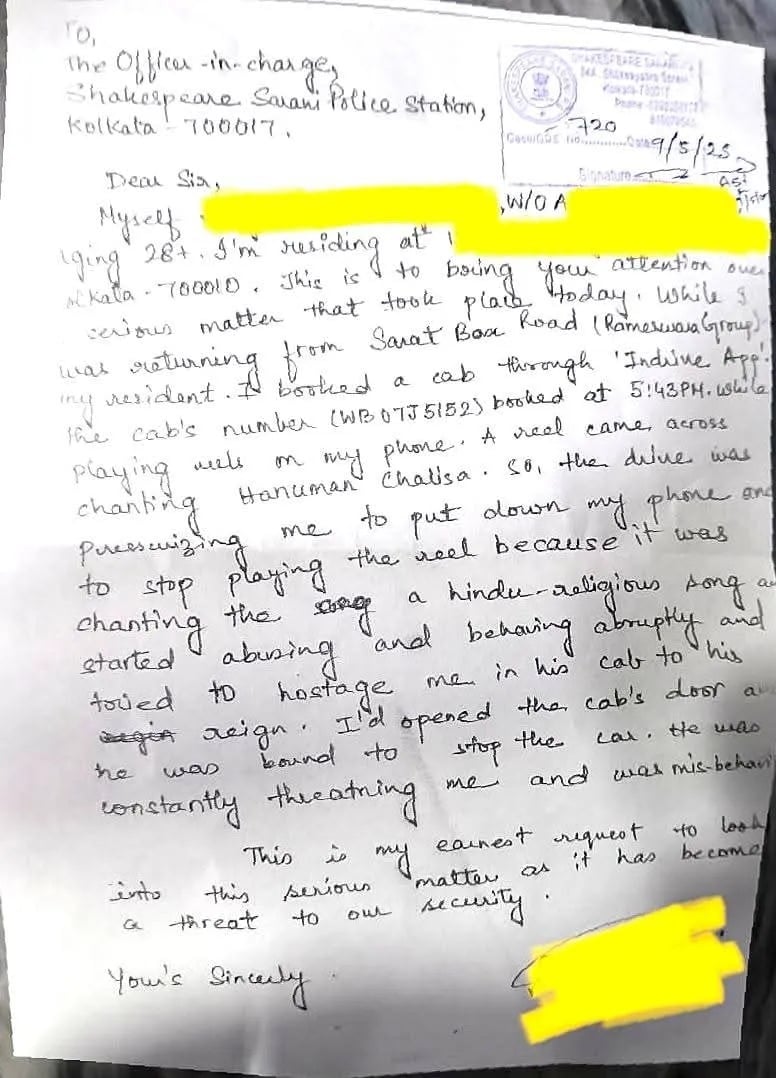 To,
The Officer-in-charge,
Shakespeare Sarani Police Station,
Kolkata - 700017.
SHAKESPEARE SARANI
Kolkata-700017
Phone
720
Case/GDE No. Date 9/5/25
Signature
ASI
Dear Sir,
Myself , W/O A
ging 28+. I'm residing at
lkata - 700010. This is to bring your attention over
serious matter that took place today. While I
was returning from Sarat Bose Road (Rameswara Group)
my resident. I booked a cab through 'Indrive App'.
the cab's number (WB07J5152) booked at 5:43PM. While
playing reels on my phone. A reel came across
chanting Hanuman Chalisa. So, the drive was
pressurizing me to put down my phone and
to stop playing the reel because it was
chanting the song a hindu-religious song a
started abusing and behaving abruptly and
tried to hostage me in his cab to his
reign. I'd opened the cab's door a
he was bound to stop the car. He was
constantly threatning me and was mis-behavi
This is my earnest request to look
into this serious matter as it has become
a threat to our security.
Your's Sincerly